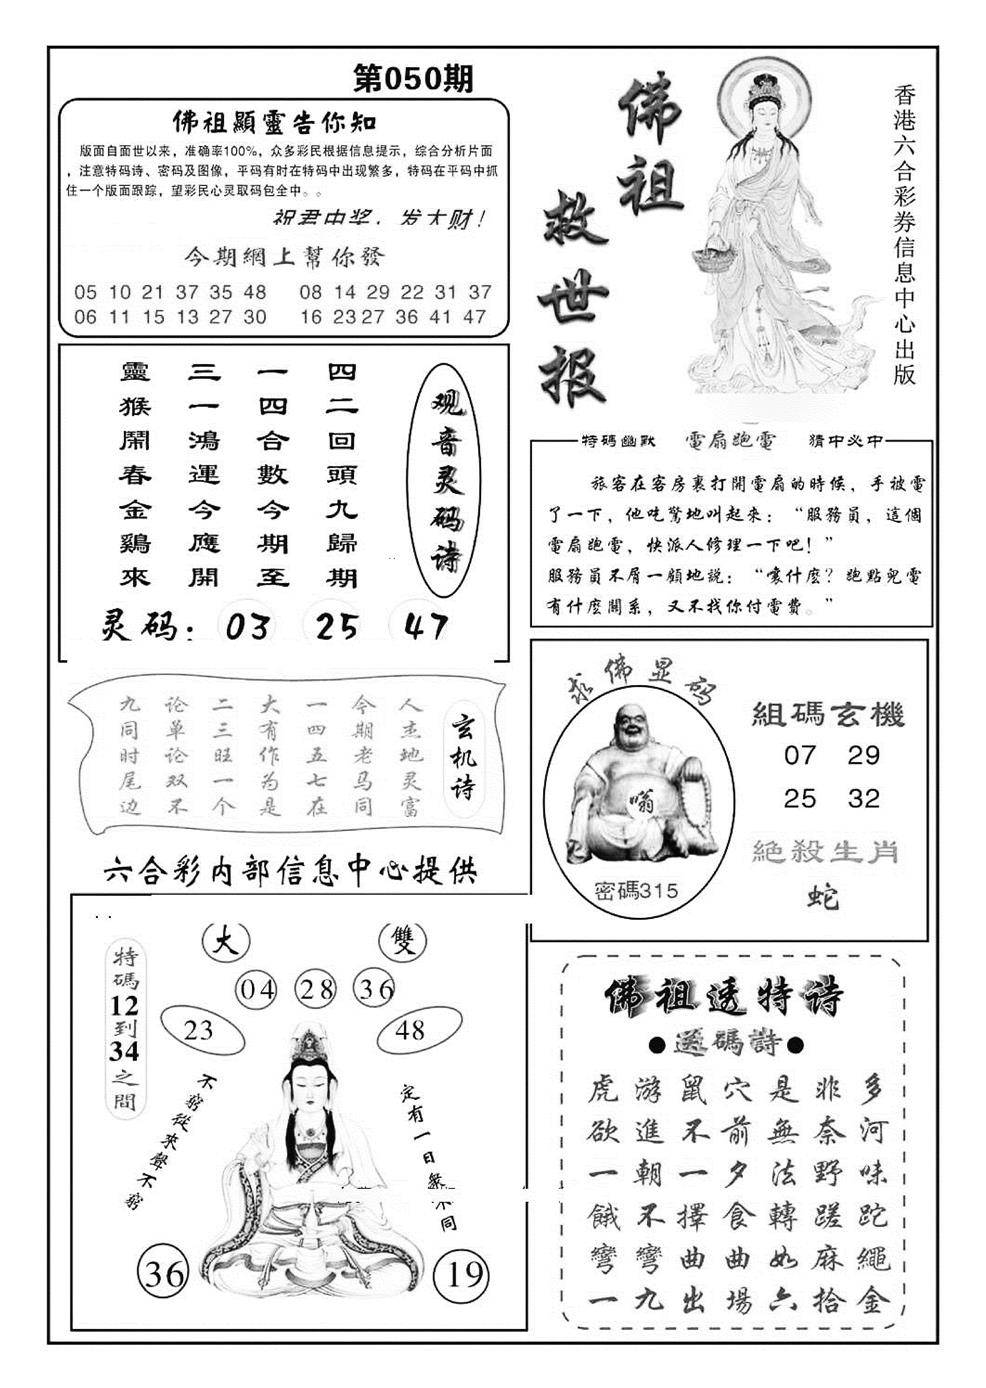 第050期
佛祖顯靈告你知
版面自面世以来，准确率100%，众多彩民根据信息提示，综合分析片面
，注意特码诗、密码及图像，平码有时在特码中出现繁多，特码在平码中抓
住一个版面跟踪，望彩民心灵取码包全中。。
祝君中奖，发大财！
今期網上幫你發
05 10 21 37 35 48 08 14 29 22 31 37
06 11 15 13 27 30 16 23 27 36 41 47
佛祖
救世报
香港六合彩券信息中心出版
观音灵码诗
四二回頭九歸期
一四合數今期至
三一鴻運今應開
靈猴鬧春金鷄來
灵码：03 25 47
特碼幽默 電扇跑電 猜中必中
旅客在客房裏打開電扇的時候，手被電
了一下，他吃驚地叫起來：“服務員，這個
電扇跑電，快派人修理一下吧！”
服務員不屑一顧地説：“嚷什麽？跑點兒電
有什麽關系，又不找你付電費。”
玄机诗
人杰地灵富
今期老马同
一四五七在
大有作为是
二三旺一个
论单论双不
九同时尾边
六合彩内部信息中心提供
求佛显码
嗡
密碼315
組碼玄機
07 29
25 32
絕殺生肖
蛇
特碼12到34之間
大 雙
04 28 36
23 48
不窮從來聲不窮
定有一日無不同
36 19
佛祖透特诗
●透碼詩●
虎游鼠穴是非多
欲進不前無奈河
一朝一夕法野味
餓不擇食轉蹉跎
彎彎曲曲如麻繩
一九出場六拾金